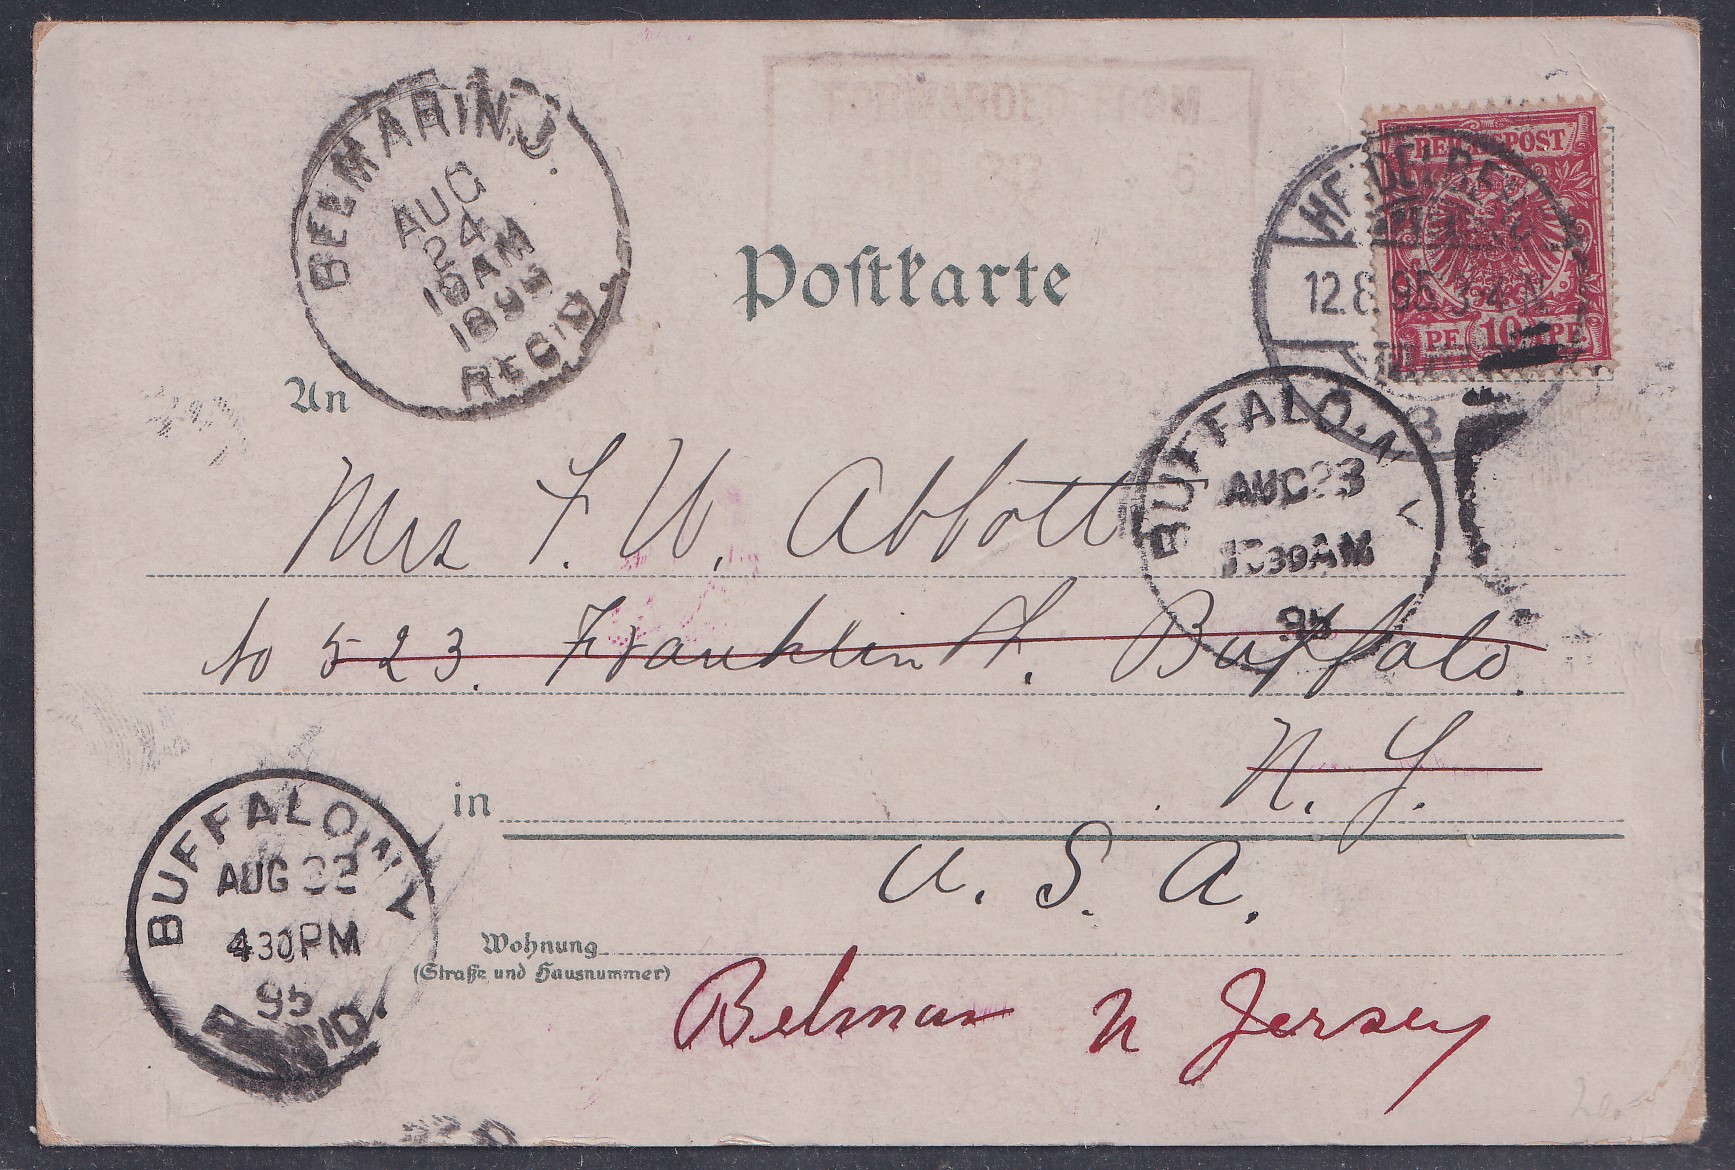 BELMAR, N.J.
AUG
24
10AM
1895
REC'D.
FORWARDED FROM
REICHSPOST
PF 10 PF
HEIDELBERG
12.8.95.3-4N
Postkarte
An
BUFFALO, N Y
AUG 23
1030AM
95
Mrs F. W. Abbott
to 523. Franklin St. Buffalo.
N. Y.
in
U. S. A.
BUFFALO, N.Y.
AUG 22
430PM
95
REC'D.
Wohnung
(Straße und Hausnummer)
Belmar N Jersey